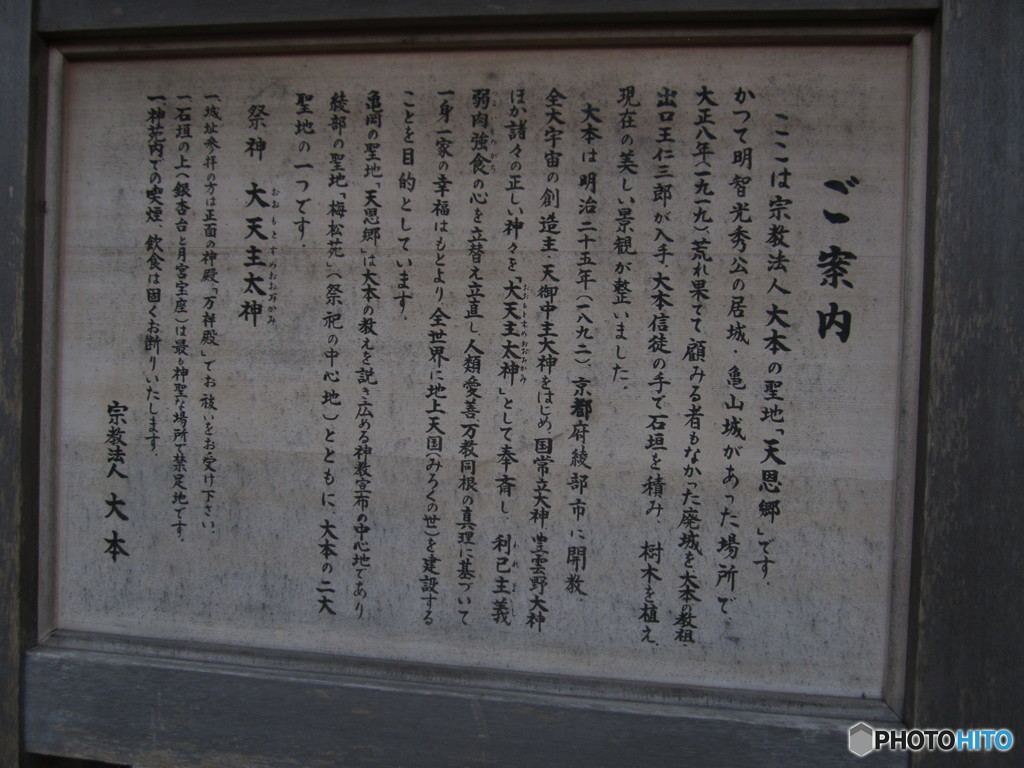 ご案内
ここは宗教法人大本の聖地「天恩郷」です。
かつて明智光秀公の居城・亀山城があった場所で
大正八年(一九一九)、荒れ果てて顧みる者もなかった廃城を大本の教祖・
出口王仁三郎が入手、大本信徒の手で石垣を積み、樹木を植え
現在の美しい景観が整いました。
大本は明治二十五年(一八九二)、京都府綾部市に開教。
全大宇宙の創造主・天御中主大神をはじめ、国常立大神、豊雲野大神
ほか諸々の正しい神々を「大天主太神」として奉斎し、利己主義
弱肉強食の心を立替え立直し、人類愛善・万教同根の真理に基づいて
一身一家の幸福はもとより、全世界に地上天国(みろくの世)を建設する
ことを目的としています。
亀岡の聖地「天恩郷」は大本の教えを説き広める神教宣布の中心地であり
綾部の聖地「梅松苑」(祭祀の中心地)とともに、大本の二大
聖地の一つです。
祭神 大天主太神
おおもとすめおおみかみ
一、城址参拝の方は正面の神殿「万祥殿」でお祓いをお受け下さい。
一、石垣の上(銀杏台と月宮宝座)は最も神聖な場所で禁足地です。
一、神苑内での喫煙、飲食は固くお断りいたします。
宗教法人 大本
PHOTOHITO